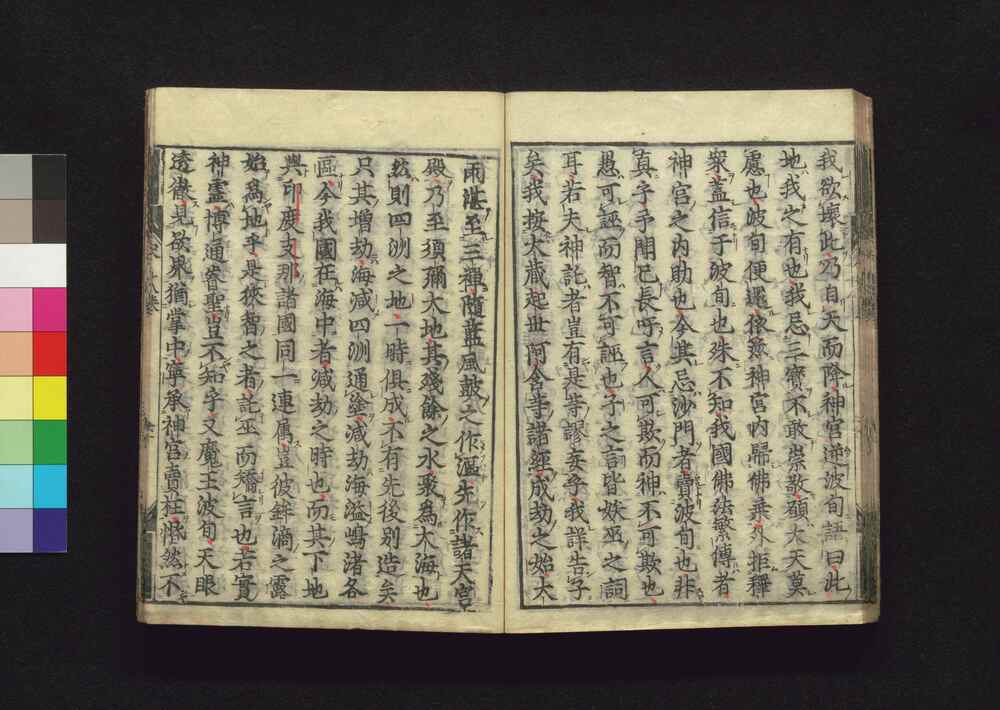 我欲壞此乃自天而降神宮逆波旬語曰此
地我之有也我忌三寶不敢崇敬願大天莫
慮也波旬便還後爰神宮內歸佛乘外拒釋
衆蓋信于波旬也殊不知我國佛法繁傳者
神宮之內助也今其忌沙門者賣波旬也非
真乎予聞已長吁言人可欺而神不可欺也
愚可誣而智不可誣也子之言皆妖巫之詞
耳若夫神託者豈有是等謬妄乎我詳告子
矣我按大藏起世阿含等諸經成劫之始大
雨湛至三禪隨藍風鼓之作漚先作諸天宮
殿乃至須彌大地其殘餘之水聚為大海也
然則四洲之地一時俱成不有先後別造矣
只其增劫海減四洲通塗減劫海溢嶋渚各
區今我國在海中者減劫之時也而其下地
與印度支那諸國同一連属豈彼鉾滴之露
始為地乎是狹智之者託巫而矯言也若實
神靈博通睿聖豈不知乎又魔王波旬天眼
透徹見欲界猶掌中寧承神宮賣杜惑然不